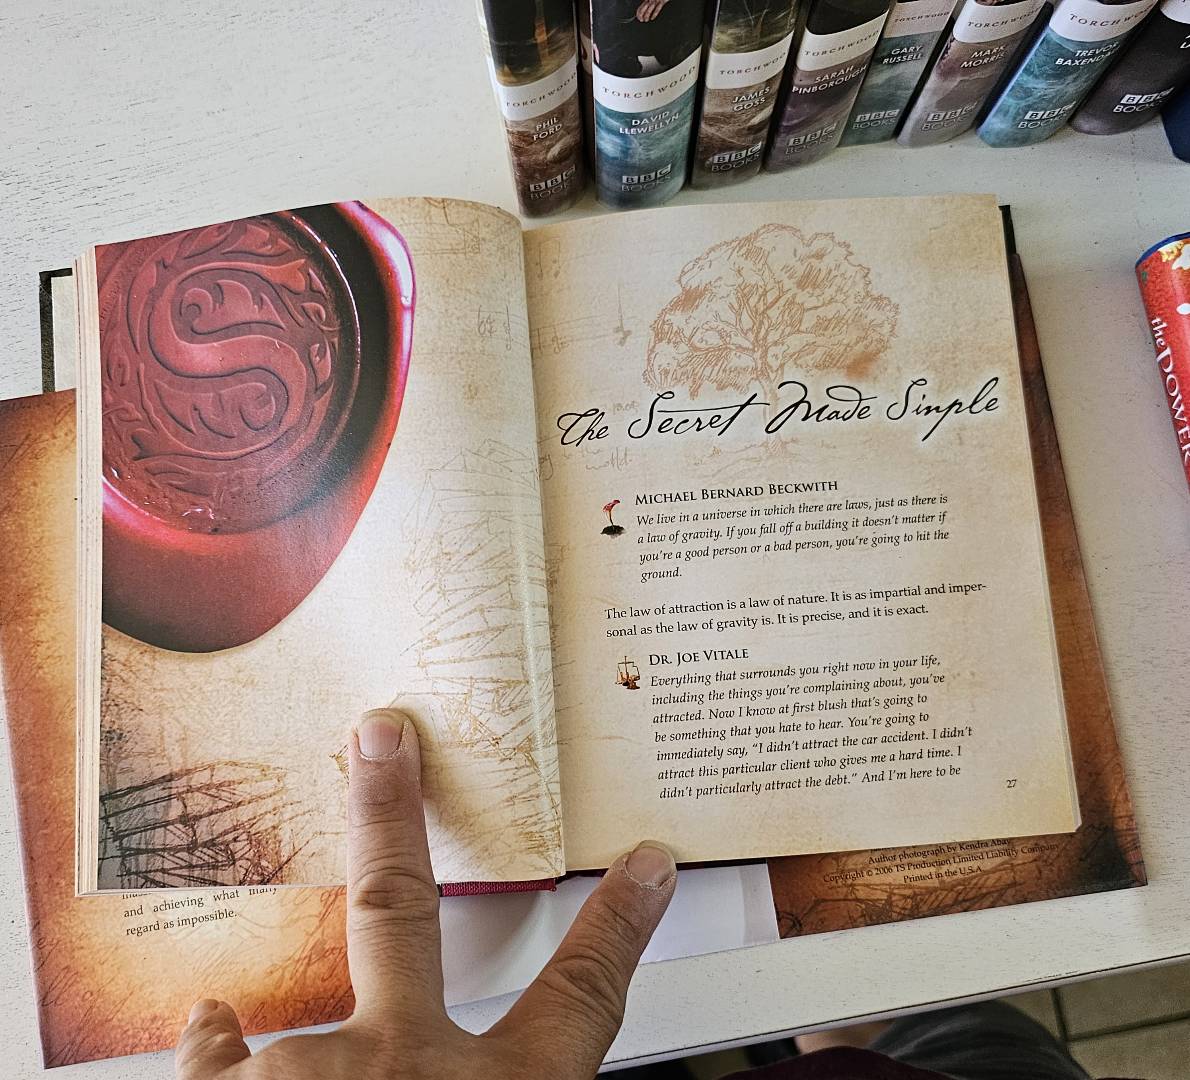 TORCHWOOD
PHIL
FORD
BBC
BOOKS
TORCHWOOD
DAVID
LLEWELLYN
BBC
BOOKS
TORCHWOOD
JAMES
GOSS
BBC
BOOKS
TORCHWOOD
SARAH
PINBOROUGH
BBC
BOOKS
TORCHWOOD
GARY
RUSSELL
BBC
BOOKS
TORCHWOOD
MARK
MORRIS
BBC
BOOKS
TORCHWOOD
TREVOR
BAXENDALE
BBC
BOOKS
BBC
BOOKS
the POWER
S
The Secret Made Simple
MICHAEL BERNARD BECKWITH
We live in a universe in which there are laws, just as there is
a law of gravity. If you fall off a building it doesn't matter if
you're a good person or a bad person, you're going to hit the
ground.
The law of attraction is a law of nature. It is as impartial and imper-
sonal as the law of gravity is. It is precise, and it is exact.
DR. JOE VITALE
Everything that surrounds you right now in your life,
including the things you're complaining about, you've
attracted. Now I know at first blush that's going to
be something that you hate to hear. You're going to
immediately say, "I didn't attract the car accident. I didn't
attract this particular client who gives me a hard time. I
didn't particularly attract the debt." And I'm here to be
27
and achieving what many
regard as impossible.
Author photograph by Kendra Abay
Copyright © 2006 TS Production Limited Liability Company
Printed in the U.S.A.